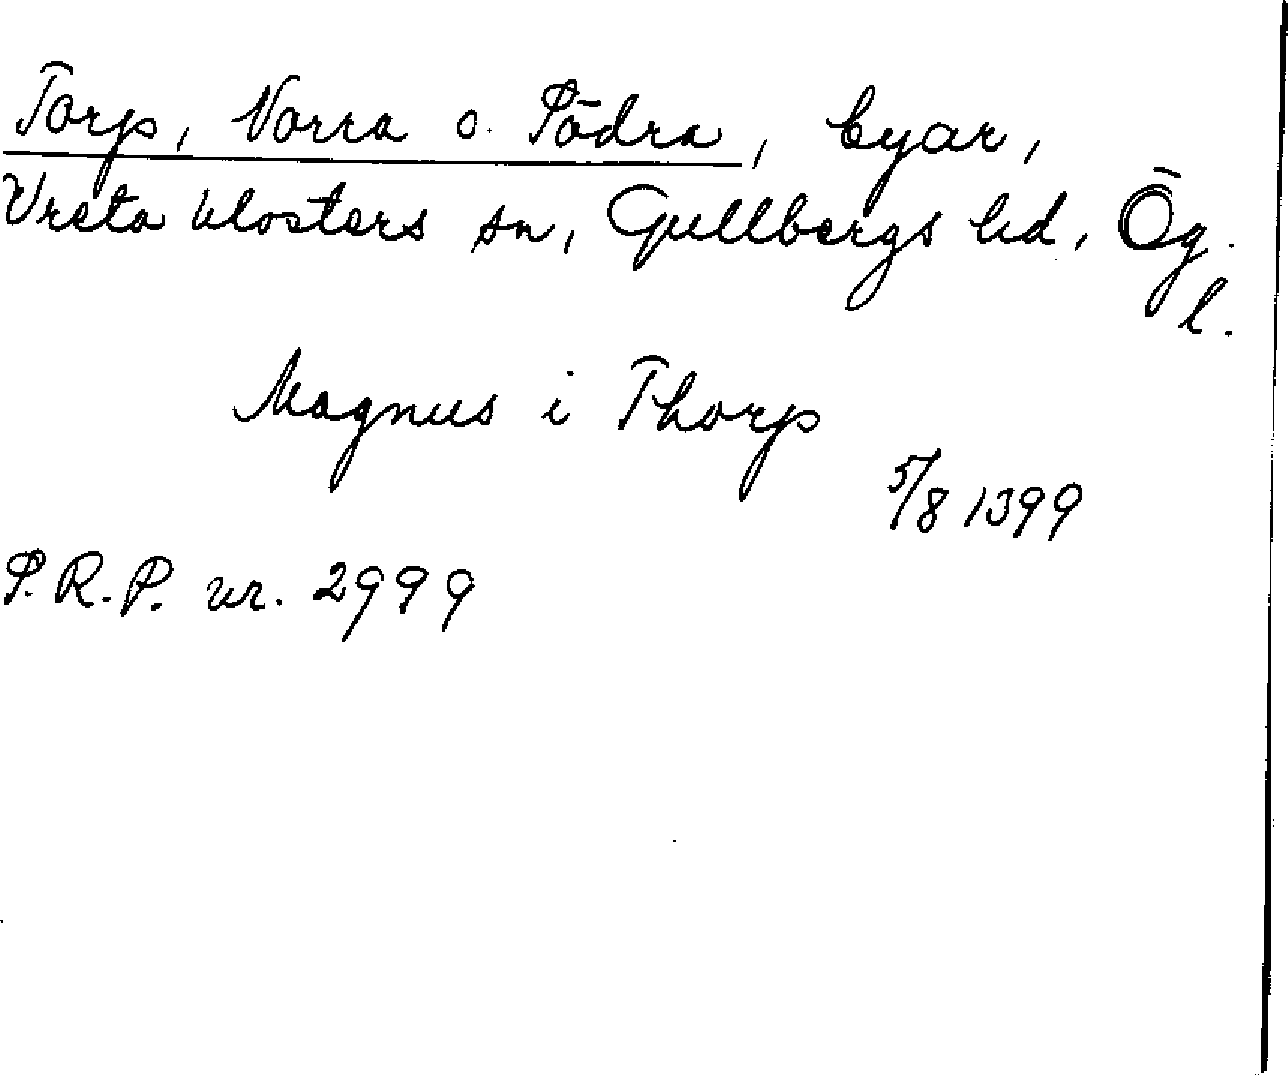 Torp, Norra o. Södra, byar,
Vreta klosters sn, Gullbergs hd, Ög.
l.
Magnus i Thorp
5/8 1399
P.R.P. nr. 2999